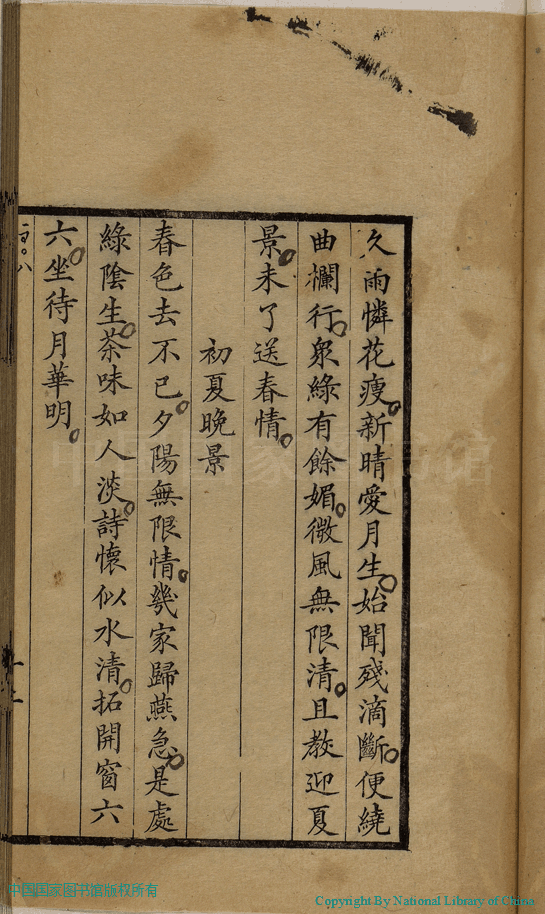 久雨憐花瘦。新晴愛月生。始聞殘滴斷。便繞
曲欄行。衆綠有餘媚。微風無限清。且教迎夏
景。未了送春情。
初夏晚景
春色去不已。夕陽無限情。幾家歸燕急。是處
綠陰生。茶味如人淡。詩懷似水清。拓開窗六
六。坐待月華明。
中国国家图书馆版权所有
Copyright By National Library of China